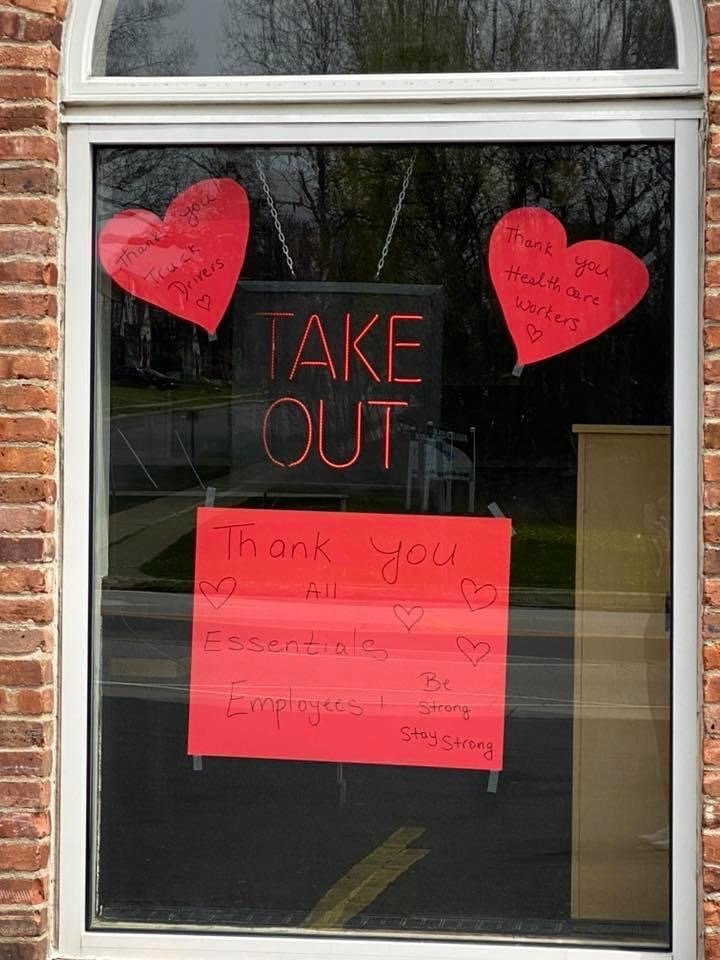 Thank you
Truck
Drivers
Thank you
Health care
workers
TAKE
OUT
Thank you
All
Essentials
Employees!
Be
Strong
Stay Strong